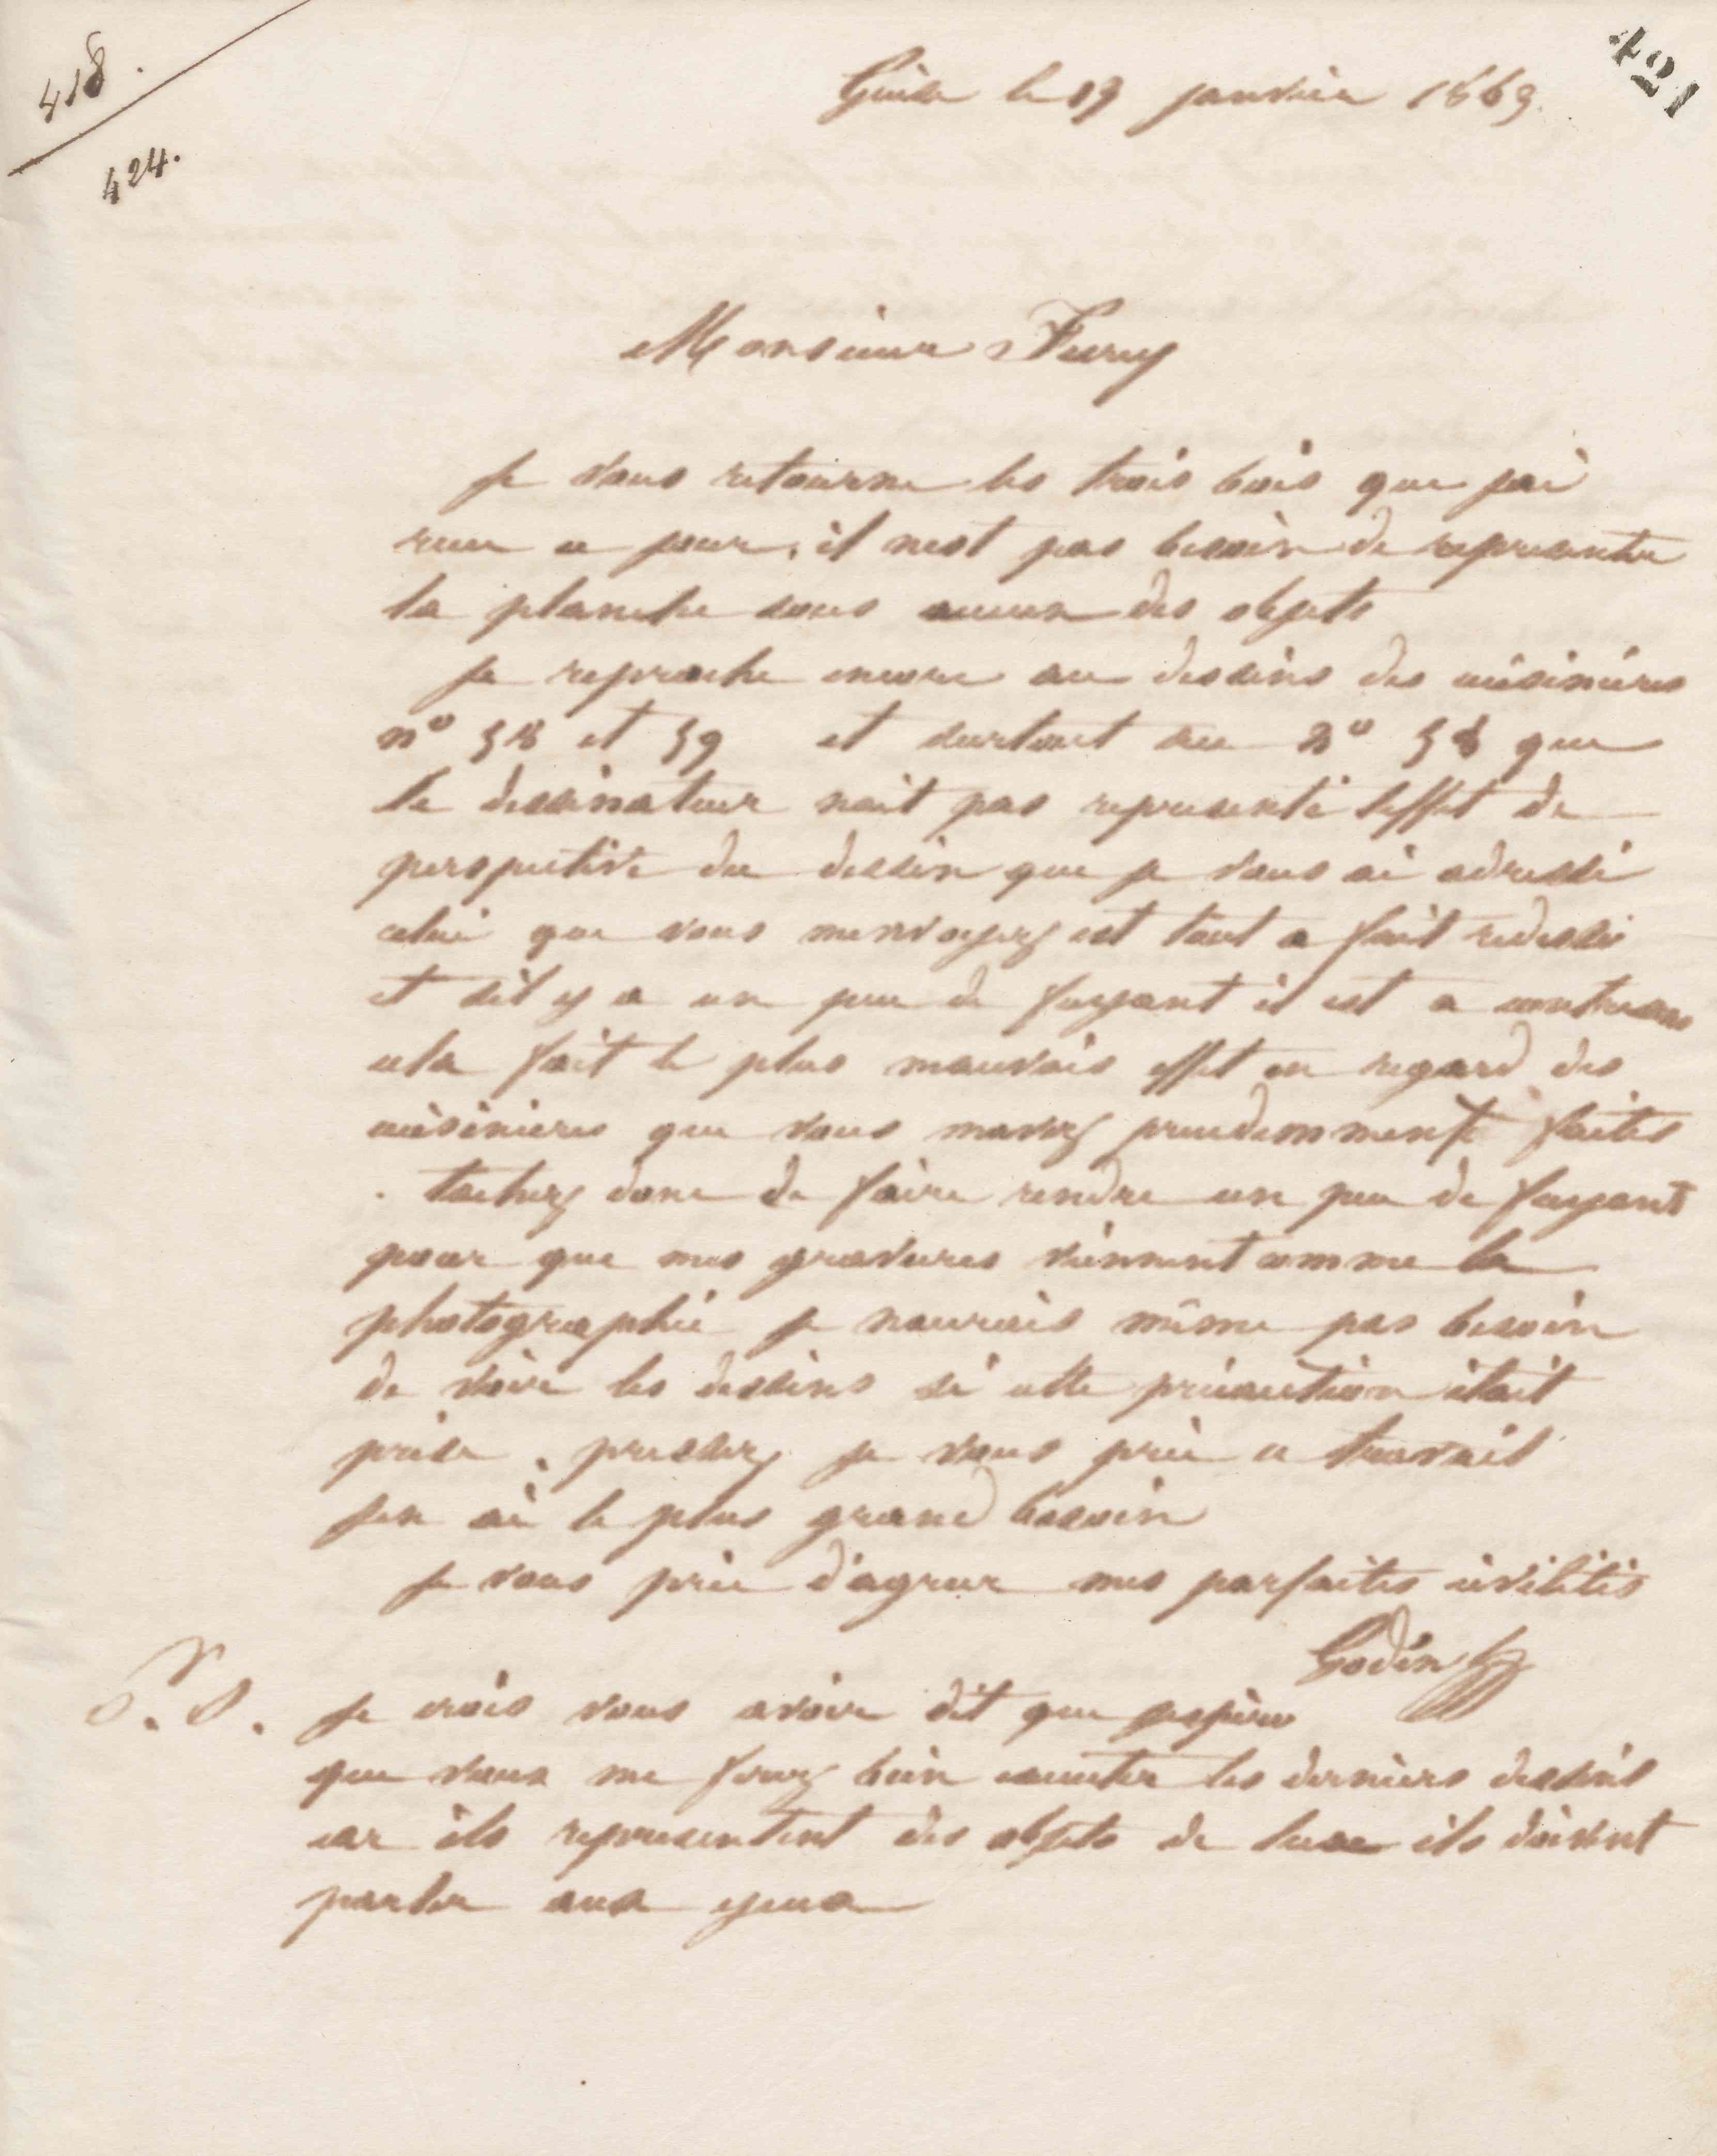 418.
424.
421
Guise le 19 janvier 1869
Monsieur
je vous retourne les trois bois que jai
recu ce jour, il nest pas besoin de representer
la planche sous aucun des objets
je reproche encore au dessins des cuisinières
n° 58 et 59 et surtout au n° 58 que
le dessinateur nait pas representé leffet de
perspective du dessin que je vous ai adressé
celui que vous menvoyez est tout a fait redressé
et sil y a un peu de fuyant il est a contresens
cela fait le plus mauvais effet en regard des
cuisinieres que vous mavez precedemment faites
. tachez donc de faire rendre un peu de fuyant
pour que mes gravures viennent comme la
photographie je naurais même pas besoin
de voir les dessins si cette précaution était
prise . pressez je vous prie ce travail
jen ai le plus grand besoin
je vous prie d'agreer mes parfaites civilités
Godin
P. S. je crois vous avoir dit que jespère
que vous me ferez bien executer les derniers dessins
car ils representent des objets de luxe ils doivent
parler aux yeux